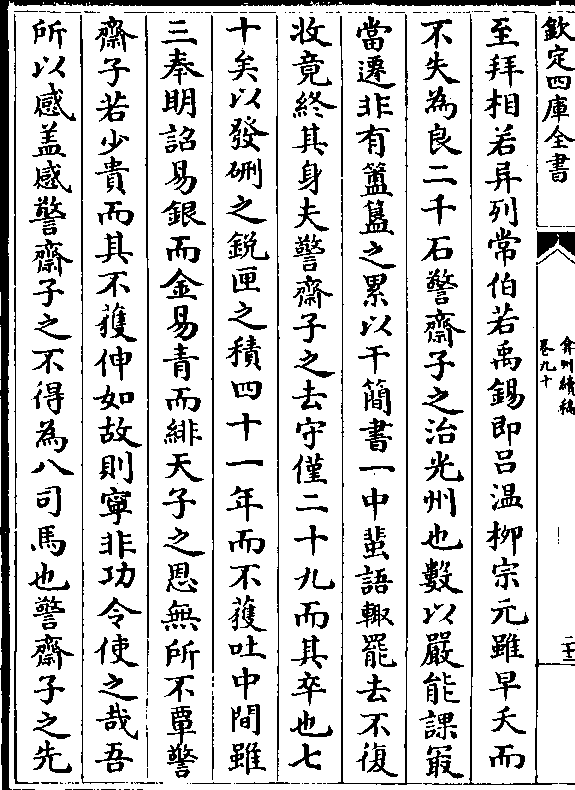 欽定四庫全書
弇州續稿
卷九十
二十二
至拜相若异列常伯若禹錫即吕温柳宗元雖早夭而
不失為良二千石警齋子之治光州也數以嚴能課最
當遷非有簠簋之累以干簡書一中蜚語輙罷去不復
收竟終其身夫警齋子之去守僅二十九而其卒也七
十矣以發硎之銳匣之積四十一年而不獲吐中間雖
三奉明詔易銀而金易青而緋天子之恩無所不覃警
齋子若少貴而其不獲伸如故則寧非功令使之哉吾
所以感盖感警齋子之不得為八司馬也警齋子之先